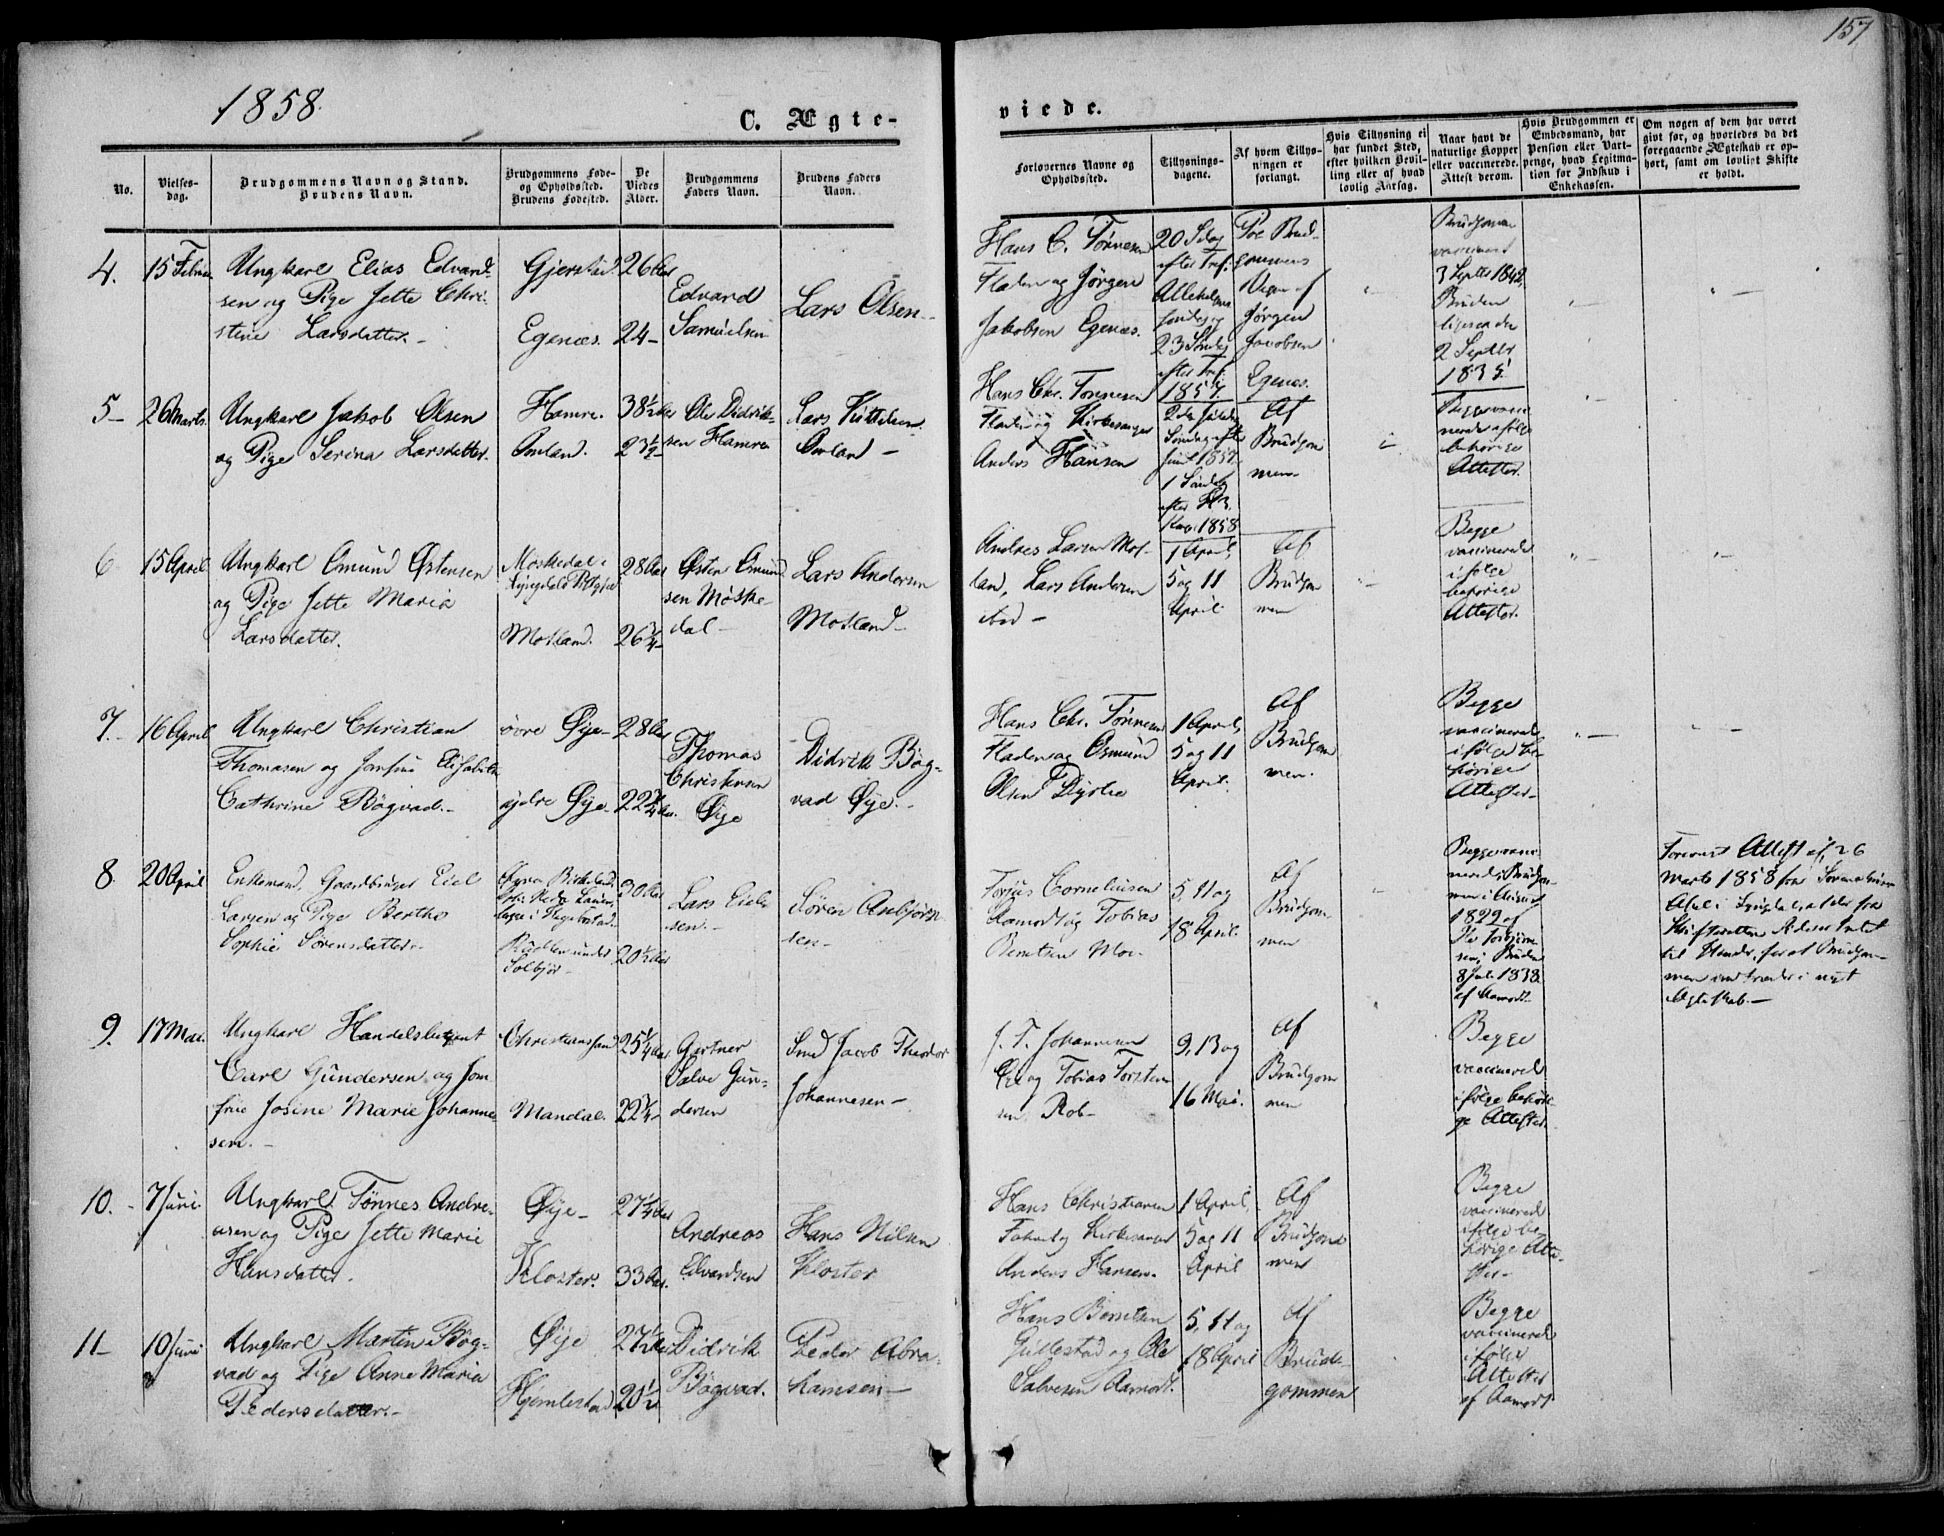 157
1858.
C. Ægte-
viede.
No.
Vielses-
dag.
Brudgommens Navn og Stand.
Brudens Navn.
Brudgommens Føde-
og Opholdssted.
Brudens Fødested.
De
Viedes
Alder.
Brudgommens
Faders Navn.
Brudens Faders
Navn.
Forlovernes Navne og
Opholdssted.
Tillysnings-
dagene.
Af hvem Tillys-
ningen er
forlangt.
Hvis Tillysning ei
har fundet Sted,
efter hvilken Bevil-
ling eller af hvad
lovlig Aarsag.
Naar havt de
naturlige Kopper
eller vaccinerede.
Attest derom.
Hvis Brudgommen er
Embedsmand, har
Pension eller Vart-
penge, hvad Legitima-
tion for Indskud i
Enkekassen.
Om nogen af dem har været
gift før, og hvorledes da det
foregaaende Ægteskab er op-
hørt, samt om lovligt Skifte
er holdt.
4.
15 Februar
Ungkarl Elias Edvard-
sen og Pige Jette Chri-
stine Larsdatter.-
Gjerstad.
Egenæs.
26 Aar
24-
Edvard
Samuelsen
Lars Olsen-
Hans C. Tønnesen
Fladen og Jørgen
Jakobsen Egenæs.
20 Sdag
efter Tref:
Allehelgens
søndag og
23 Søndag
efter Tref.
1857.
Paa Brud-
gommens
Vegne af
Jørgen
Jacobsen
Egenæs.
Brudgommen
vaccineret
3 Septbr 1842,
Bruden
ligesaa den
2 Septbr
1835.
5-
26 Marts
Ungkarl Jakob Olsen
og Pige Serina Larsdatter.
Hamre.
Omland.
38½ Aar
23½
Ole Didrik-
sen Hamre
Lars Kittelsen
Omland -
Hans Chr. Tønnesen
Fladen og Kirkesanger
Anders Hansen
Søndag efter
1857.
1 Søndag
efter
1858
Af
Brudgom
men.
Begge vacci
nerede ifølge
behørige
Attester.
6
15 April
Ungkarl Omund Østensen
og Pige Jette Maria
Larsdatter.
Moskedal i
Mosland.
28 Aar
26¾
Østen Omund
sen Møske
dal -
Lars Andersen
Mosland -
Andreas Larsen Mos-
land, Lars Andersen
ibid -
1 April,
5 og 11
April.
Af
Brudgom
men
Begge
vaccinerede
ifølge
behørige
Attester.
7.-
16 April
Ungkarl Christian
Thomasen og Jomfru Elisabeth
Cathrine Bøgvad.-
øvre Øye-
ydre Øye-
28 Aar
22¾ Aar.
Thomas
Christensen
Øye
Didrik Bøg-
vad Øye.-
Hans Chr. Tønnesen
Fladen og Osmund
Olsen Dyrlie
1 April,
5 og 11
April.
Af
Brudgom
men.
Begge
vaccinerede
ifølge be
hørige
Attester-
8.
20 April
Enkemand, Gaardbruger Eiel
Larsen og Pige Berthe
Sophie Sørensdatter.-
Øvre Birkeland,
Solbjør-
30 Aar
20½ Aar
Lars Eiels
sen.-
Søren Anbjørn
sen-
Torjus Corneliusen
Aamodt og Tobias
Berntsen Moe.
5, 11 og
18 April.
Af
Brudgom
men
Begge vacci
nerede, Brudgom-
men i August
1829 af
Ole Torbjørn
sen; Bruden
8 Juli 1838
af Aamodt.
Foreviist Attest af 26
Marts 1858 fra
i Lyngdal
Skifteretten Aldeles Intet
til Hinder for at Brudgom-
men indtræder i nyt
Ægteskab.-
9.
17 Mai.
Ungkarl Handelsbetjent
Carl Gundersen og Jom
frue Josine Marie Johanne
sen.-
Christianssand
Mandal.
25¼ Aar
22¼
Gartner
Salve Gun-
dersen
Smed Jacob Theodor
Johannesen-
J. T. Johannesen
og Tobias Torsten
sen, Rob-
9, 13 og
16 Mai.
Af
Brudgom
men
Begge
vaccinerede
ifølge behøri-
ge Attester.
10.-
7 Juni
Ungkarl Tønnes Andre-
asen og Pige Jette Marie
Hansdatter.
Øye-
Kloster.
27¼ Aar
33 Aar.
Andreas
Edvardsen
Hans Nilsen
Kloster
Hans Christiansen
og Kirkesanger
Anders Hansen.
1 April,
5 og 11
April
Af
Brudgom
men
Begge
vaccinerede
ifølge be
hørige Atte-
ster-
11-
10 Juni
Ungkarl Martin Bøg-
vad og Pige Anne Maria
Pedersdatter.-
Øye
Hjemlestad
27½ Aar
20½
Didrik
Bøgvad.
Peder Abra-
hamsen-
Hans Berntsen
Gullestad og Ole
Salvesen Aamodt.
5, 11 og
18 April
Af
Brud-
gommen
Begge
vaccinerede
ifølge
Attester
af Aamodt